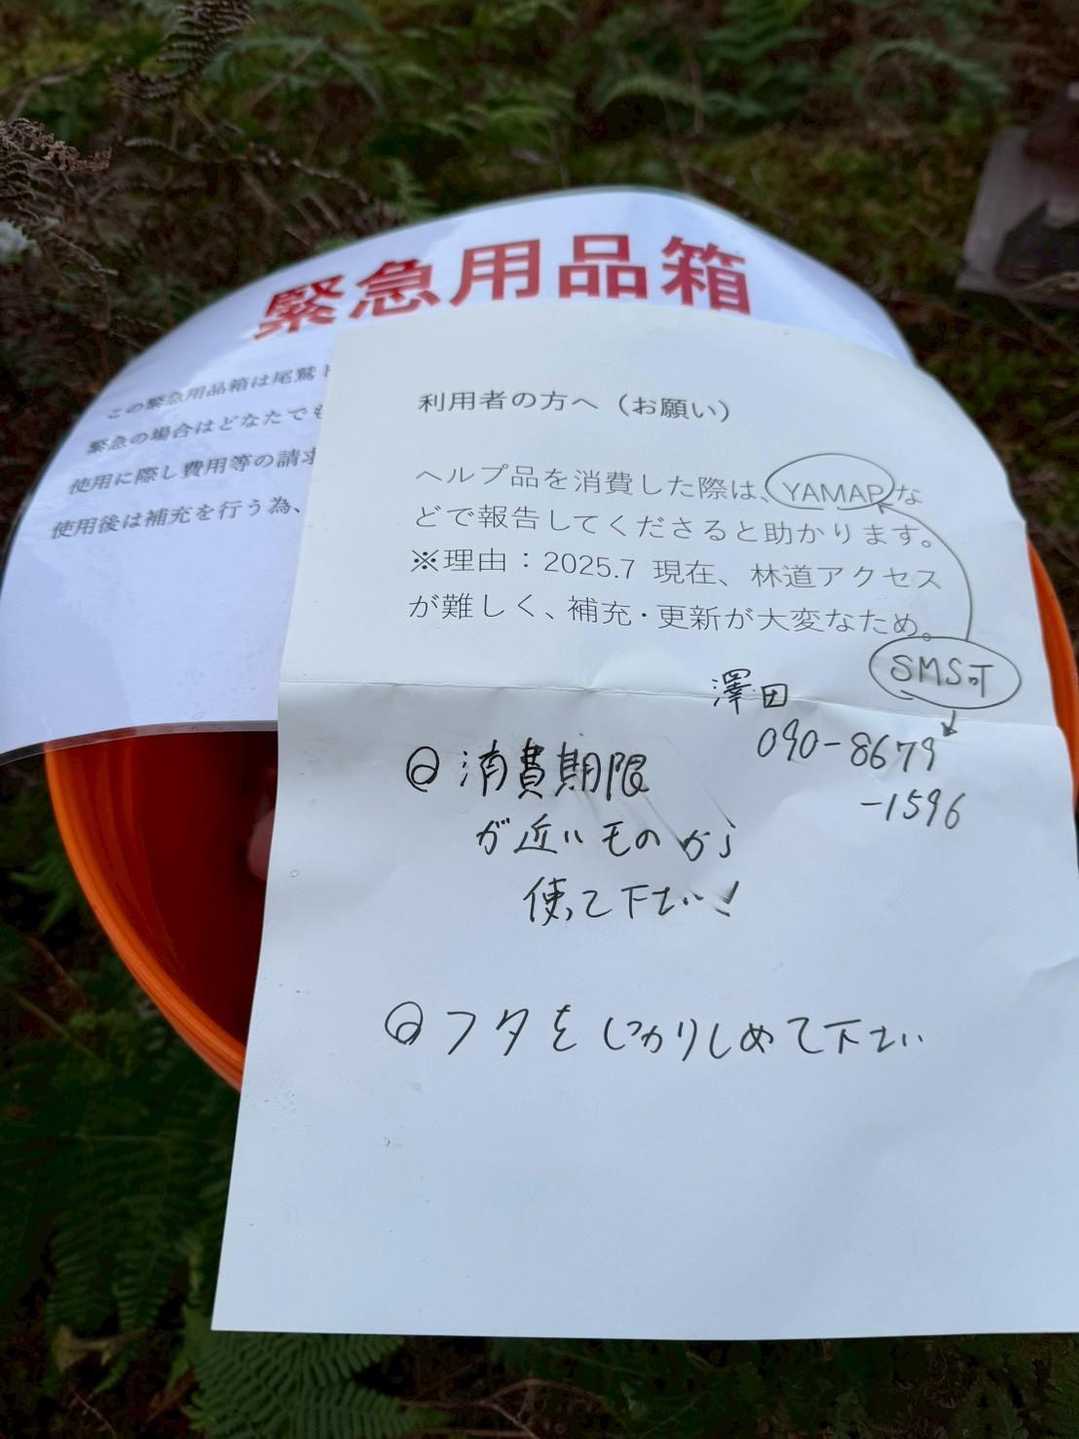 緊急用品箱
この緊急用品箱は尾鷲
緊急の場合はどなたでも
使用に際し費用等の請求
使用後は補充を行う為、
利用者の方へ（お願い）
ヘルプ品を消費した際は、YAMAPな
どで報告してくださると助かります。
※理由：2025.7 現在、林道アクセス
が難しく、補充・更新が大変なため。
SMS可
澤田
090-8679
-1596
◎消費期限
が近いものから
使って下さい！
◎フタをしっかりしめて下さい